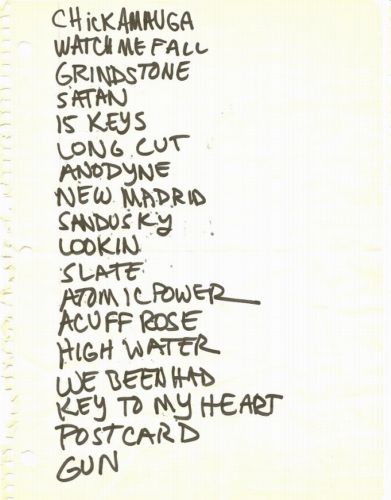 CHICKAMAUGA
WATCH ME FALL
GRINDSTONE
SATAN
15 KEYS
LONG CUT
ANODYNE
NEW MADRID
SANDUSKY
LOOKIN
SLATE
ATOMIC POWER
ACUFF ROSE
HIGH WATER
WE BEEN HAD
KEY TO MY HEART
POSTCARD
GUN